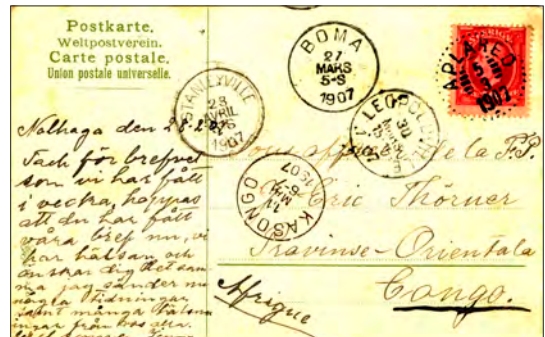 Postkarte.
Weltpostverein.
Carte postale.
Union postale universelle.
BOMA
27
MARS
5-S
1907
SVERIGE
APLARED
1907
STANLEYVILLE
28
AVRIL
1907
LEOPOLDVILLE
30
KASONGO
11
MAI
6-
1907
Nalhaga den 28.2.
Tack för brefvet
som vi har fått
i vecka, hoppas
att du har fått
våra bref nu, vi
har hälsan och
önskar dig det sam
ma jag sänder nu
några tidningar
samt många hälsn
ingar från oss alla.
Sous de la F.P.
Eric Thörner
Travinse-Orientala
Congo.
Afrique